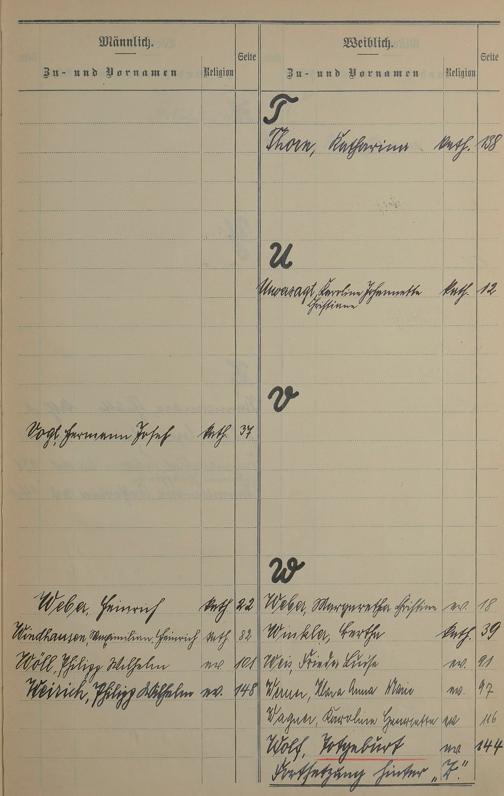 Männlich.
Zu- und Vornamen Religion Seite
Weiblich.
Zu- und Vornamen Religion Seite
T
Katharina kath. 138
U
Karoline Johannette kath. 12
Christiane
V
Vogl, Hermann Josef kath. 37
W
Weber, Heinrich kath 22
Weber, Margaretha Christine ev. 18
Maximilian Heinrich kath 82
Winkler, Bertha kath. 39
Wöll, Philipp Wilhelm ev. 101
Weis, Frieda Luise ev. 91
Weirich, Philipp Wilhelm ev. 148
Anna Marie ev. 97
Wagner, Karoline Henriette ev 116
Wolf, Totgeburt ev 144
Fortsetzung hinter „Z“.